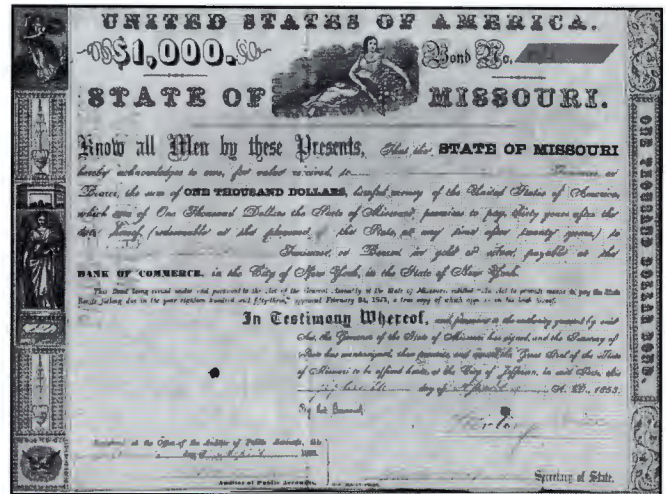 UNITED STATES OF AMERICA.
$1,000. Bond No.
STATE OF MISSOURI.
Know all Men by these Presents, That the STATE OF MISSOURI
hereby acknowledges to owe, for value received, to
Bearer, the sum of ONE THOUSAND DOLLARS, lawful money of the United States of America,
which sum of One Thousand Dollars the State of Missouri promises to pay, thirty years after the
date hereof, (redeemable at the pleasure of the State, at any time after twenty years,) to
or Bearer in gold or silver, payable at the
BANK OF COMMERCE, in the City of New York, in the State of New York.
This Bond being issued under and pursuant to the Act of the General Assembly of the State of Missouri, entitled "An Act to provide means to pay the State
Bonds falling due in the year eighteen hundred and fifty-three," approved February 24, 1853, a true copy of which
In Testimony Whereof, and pursuant to the authority granted by said
Act, the Governor of the State of Missouri has signed, and the Secretary of
State has countersigned these presents, and the Great Seal of the State
of Missouri to be affixed hereto, at the City of Jefferson, in said State, this
day of A. D., 1853.
By the Governor,
Sterling Price
at the Office of the Auditor of Public Accounts, this
day of 1853.
Auditor of Public Accounts.
Secretary of State.
ONE THOUSAND DOLLAR BOND.